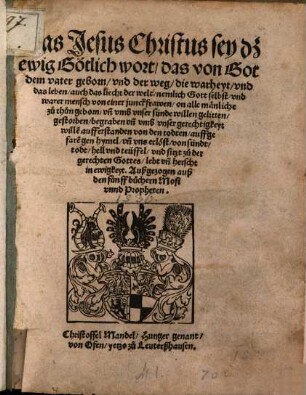 Das Jesus Christus sey dz
ewig Götlich wort / das von Got
dem vater geborn / vnd der weg / die warheyt / vnd
das leben / auch das liecht der welt / nemlich Gott selbst vnd
warer mensch von einer junckfrawen / on alle mänliche
zů thůn geborn / vñ vmb vnser sünde willen gelitten /
gestorben / begraben vñ vmb vnser gerechtigkeyt
willē aufferstanden von den todten / auffge
farē gen hymel / vñ vns erlößt / von sünde /
todt / hell vnd teüffel / vnd sitzt zů der
gerechten Gottes / lebt vñ herscht
in ewigkeyt. Außgezogen auß
den fünff bůchern Mosi
vnnd Propheten.
Christoffel Mandel / Hunger genant /
von Ofen / yetzo zů Leuterßhausen.